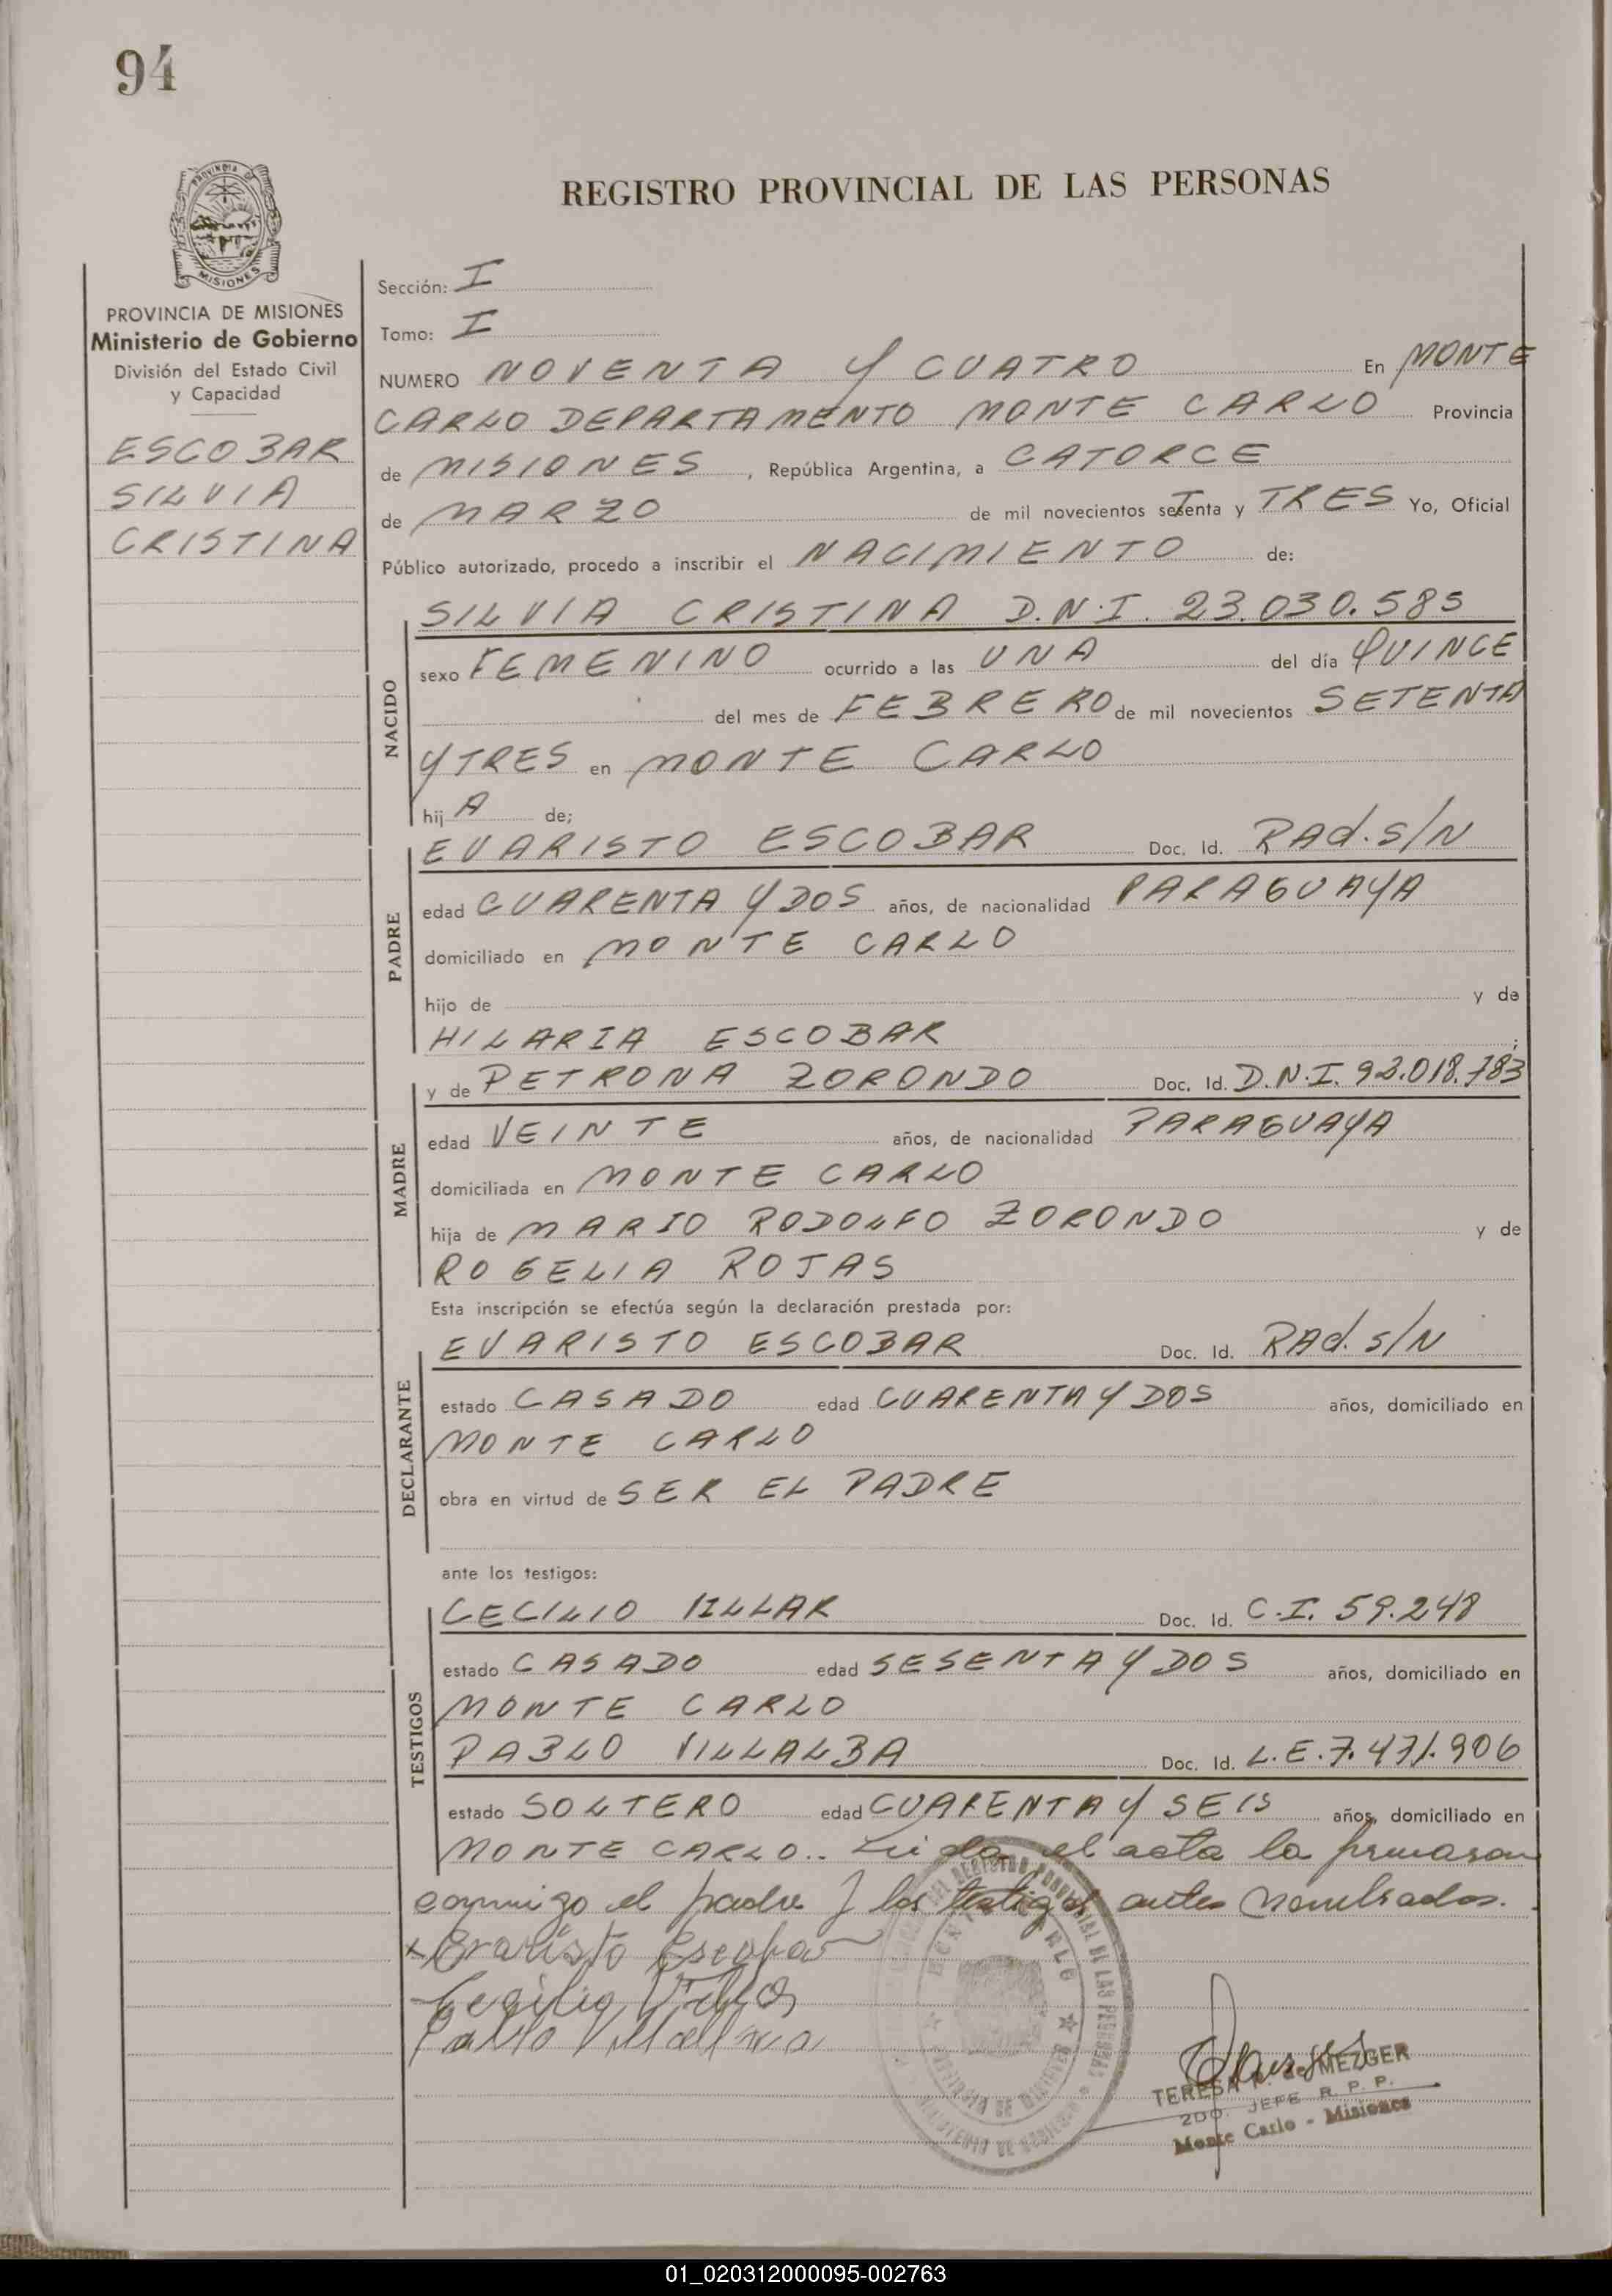 94
PROVINCIA DE MISIONES
REGISTRO PROVINCIAL DE LAS PERSONAS
PROVINCIA DE MISIONES
Ministerio de Gobierno
División del Estado Civil
y Capacidad
ESCOBAR
SILVIA
CRISTINA
Sección: I
Tomo: I
NUMERO NOVENTA Y CUATRO En MONTE
CARLO DEPARTAMENTO MONTE CARLO Provincia
de MISIONES, República Argentina, a CATORCE
de MARZO de mil novecientos setenta y TRES Yo, Oficial
Público autorizado, procedo a inscribir el NACIMIENTO de:
NACIDO
SILVIA CRISTINA D.N.I. 23.030.585
sexo FEMENINO ocurrido a las UNA del día QUINCE
del mes de FEBRERO de mil novecientos SETENTA
Y TRES en MONTE CARLO
hij A de;
PADRE
EVARISTO ESCOBAR Doc. Id. RAd. S/N
edad CUARENTA Y DOS años, de nacionalidad PARAGUAYA
domiciliado en MONTE CARLO
hijo de y de
HILARIA ESCOBAR ;
MADRE
y de PETRONA ZORONDO Doc. Id. D.N.I. 92.018.783
edad VEINTE años, de nacionalidad PARAGUAYA
domiciliada en MONTE CARLO
hija de MARIO RODOLFO ZORONDO y de
ROGELIA ROJAS
Esta inscripción se efectúa según la declaración prestada por:
DECLARANTE
EVARISTO ESCOBAR Doc. Id. RAd. S/N
estado CASADO edad CUARENTA Y DOS años, domiciliado en
MONTE CARLO
obra en virtud de SER EL PADRE
ante los testigos:
TESTIGOS
CECILIO VILLAR Doc. Id. C.I. 59.248
estado CASADO edad SESENTA Y DOS años, domiciliado en
MONTE CARLO
PABLO VILLALBA Doc. Id. L.E. 7.471.906
estado SOLTERO edad CUARENTA Y SEIS años, domiciliado en
MONTE CARLO.. Leida el acta la firmaron
conmigo el padre y los testigos antes nombrados.
x Evaristo Escobar
Cecilio Villar
Pablo Villalba
TERESA de MEZGER
2DO. JEFE R. P. P.
Monte Carlo - Misiones
01_020312000095-002763